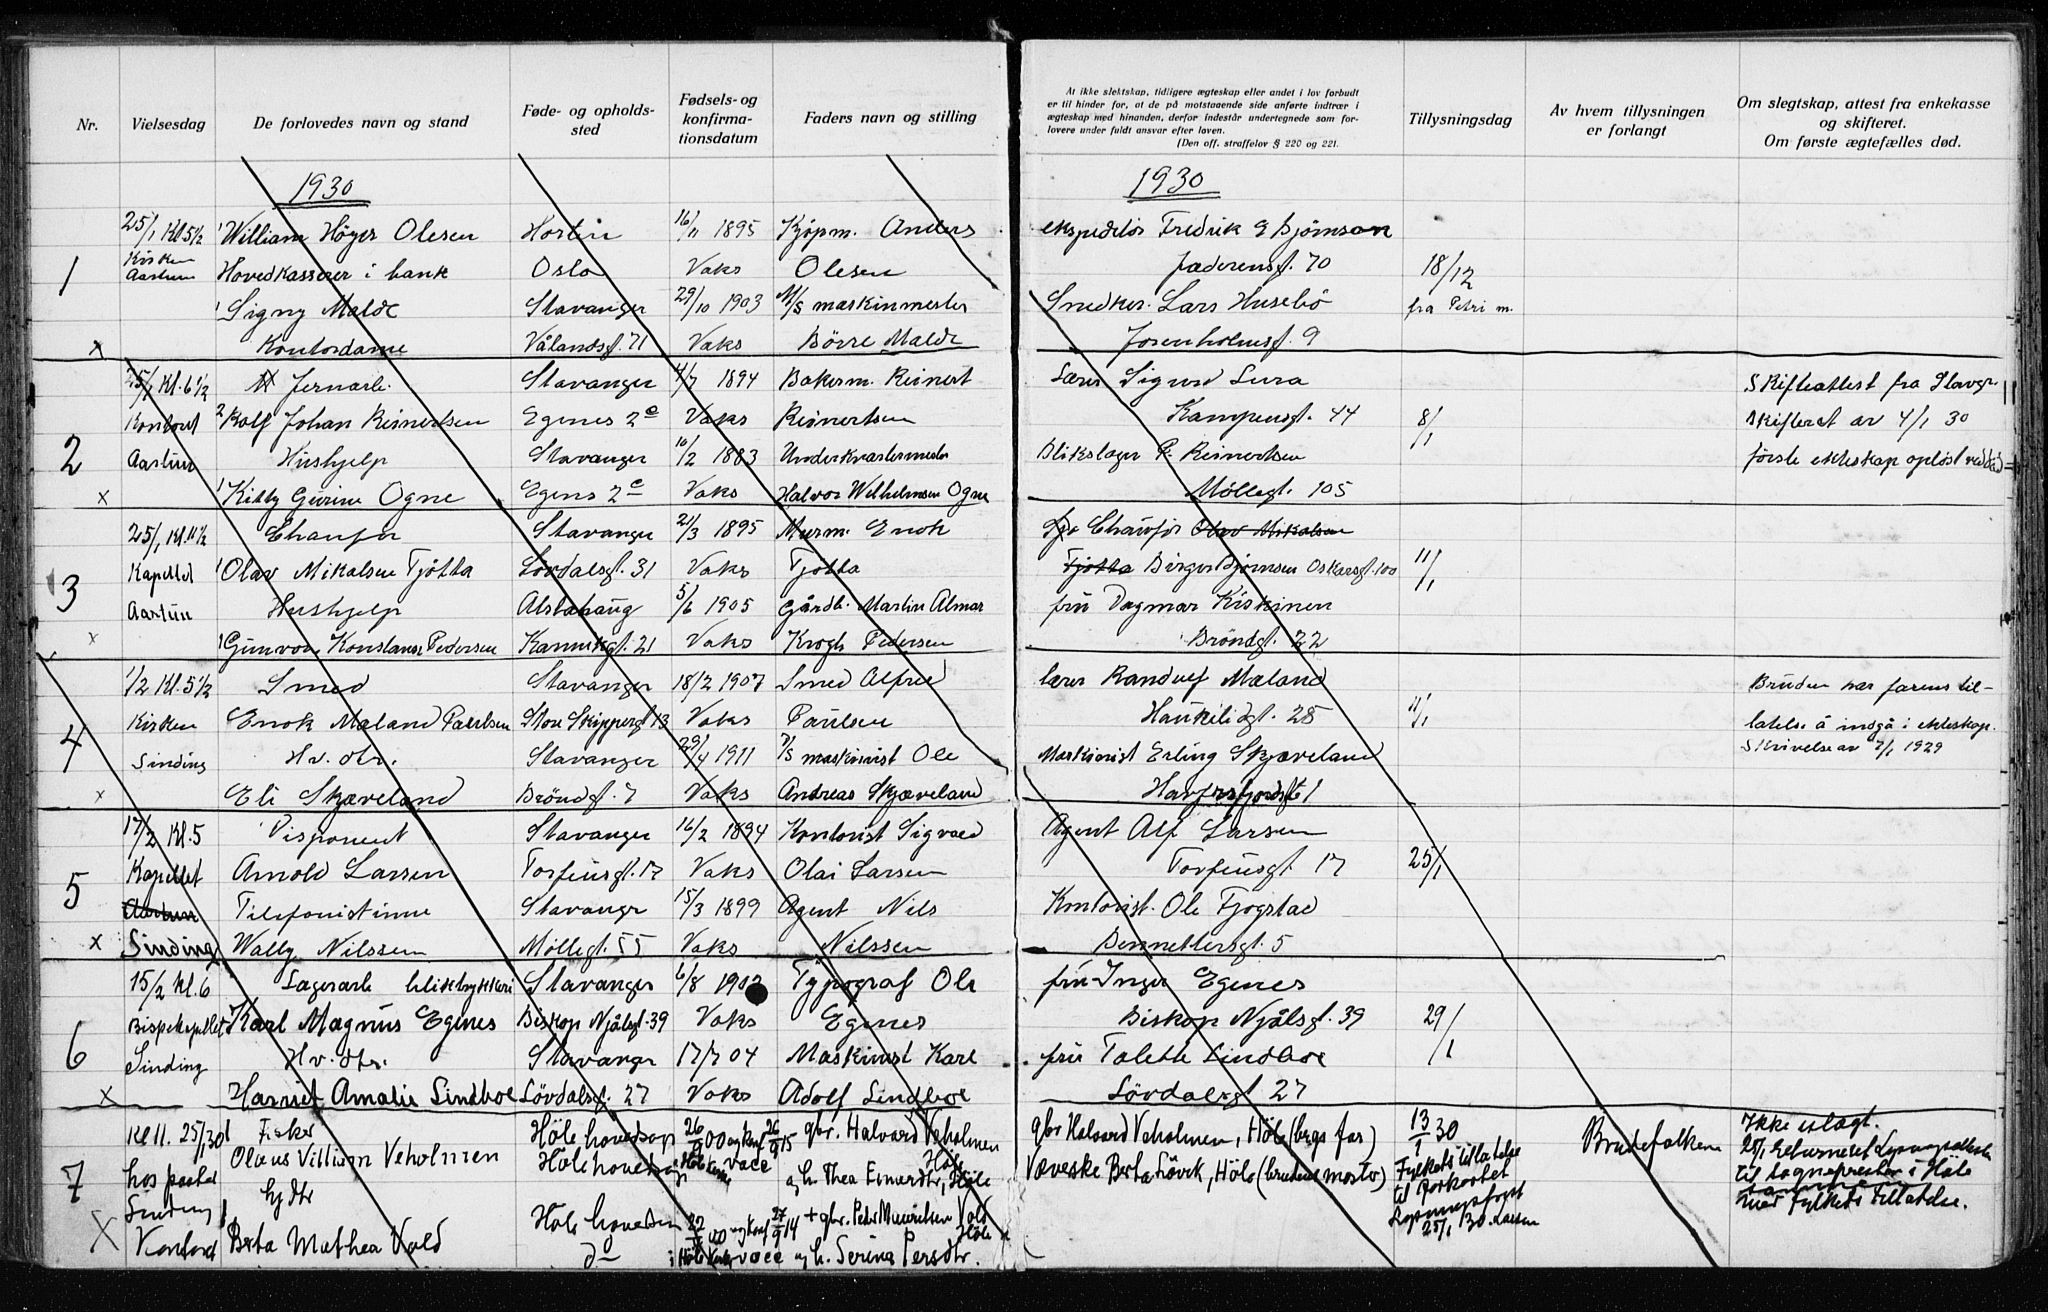 Nr.
Vielsesdag
De forlovedes navn og stand
Føde- og opholds-
sted
Fødsels- og
konfirma-
tionsdatum
Faders navn og stilling
1930
25/1 Kl 5 1/2 William Höyer Olesen Horten 16/11 1895 Kjøpm. Anders
Kirken
1 Aartun Hovedkasserer i bank Oslo Vaks Olesen
Signy Malde Stavanger 29/10 1903 M/S maskinmester
x Kontordame Vålandsg. 71 Vaks Børre Malde
25/1 Kl. 6 1/2 Jernarb. Stavanger 4/7 1894 Bakerm. Reinert
Kontoret 2 Rolf Johan Reinertsen Egenes 2e Vaks Reinertsen
2 Aartun Hushjelp Stavanger 10/2 1883 Underkvartermester
x Kitty Gurine Ogne Egenes 2e Vaks Halvor Wilhelmsen Ogne
25/1 Kl. 11 1/2 Chaufør Stavanger 21/3 1895 Murm. Enok
3 Kapellet Olav Mikalsen Tjøtta Lövdalsgt. 31 Vaks Tjøtta
Aartun Hushjelp Alstahaug 5/6 1905 Gårdb. Martin Almar
x Gunvor Konstanse Pedersen Kannikgt. 21 Vaks Krogh Pedersen
1/2 Kl. 5 1/2 Smed Stavanger 18/2 1907 Smed Alfred
4 Kirken Enok Mæland Paulsen Store Skippergt 13 Vaks Paulsen
Sinding Hv. dtr. Stavanger 29/4 1911 maskinist Ole
x Eli Skjæveland Bröndgt. 7 Vaks Andreas Skjæveland
17/2 Kl. 5 Disponent Stavanger 16/2 1894 Kontorist Sigvald
5 Kapellet Arnold Larsen Torfinsgt. 17 Vaks Olai Larsen
Aartun Telefonistinne Stavanger 15/3 1899 Agent Nils
x Sinding Wally Nilssen Møllegt. 55 Vaks Nilssen
15/2 Kl. 6 Lagerarb. blikktrykkeri Stavanger 6/8 1902 Typograf Ole
6 Bispekapellet Karl Magnus Egenes Biskop Njålsgt. 39 Vaks Egenes
Sinding Hv. dtr. Stavanger 17/7 04 Maskinist Karl
x Harriet Amalie Lindboe Lövdalsgt. 27 Vaks Adolf Lindboe
Kl 11. 25/1 30 Fisker Höle hovedsogn 26/9 00 og konf 26/9 15 gbr. Halvard Veholmen
7 hos pastor Olaus Villiam Veholmen Höle hovedsogn vacc Höle
Sinding Gjdtr og h. Thea Einardtr, Höle
X Kontoret Berta Mathea Vold Höle hovedsogn 22 00 og konf 27/9 14 + gbr. Peder Mauritsen Vold
do i Höle kirke vacc og h. Serina Persdtr. Höle
At ikke slektskap, tidligere ægteskap eller andet i lov forbudt
er til hinder for, at de på motstaaende side anførte indtrær i
ægteskap med hinanden, derfor indestår undertegnede som for-
lovere under fuldt ansvar efter loven.
(Den off. straffelov § 220 og 221.
Tillysningsdag
Av hvem tillysningen
er forlangt
Om slegtskap, attest fra enkekasse
og skifteret.
Om første ægtefælles død.
1930
ekspeditör Fredrik G Bjørnson
Jæderensgt. 70 18/12
Snedker. Lars Husebö fra Petri m.
Josenholmsgt. 9
Lærer Sigurd Lura Skifteattest fra Stavgr.
Kampensgt. 44 8/1 skifteret av 4/1 30
Blikslager P. Reinertsen første ekteskap opløst ved död
Møllegt. 105
Chauför Olav Mikalsen
Tjøtta Birger Bjørnsen Oskarsgt. 100 11/1
fru Dagmar Kiskinen
Bröndgt. 22
lærer Randulf Mæland Bruden har farens til-
Haukeligt. 25 11/1 latelse å indgå i ekteskap.
Maskinist Erling Skjæveland Skrivelse av 7/1 1929
Havfrsfjordsgt 1
Agent Alf Larsen
Torfinsgt 17 25/1
Kontorist. Ole Tjogstad
Bennetttersgt. 5
fru Inger Egenes
Biskop Njålsgt. 39 29/1
fru Talette Lindboe
Lövdalsgt 27
gbr Halvard Veholmen, Höle (brgs far) 13/1 30 Brudefolkene Ikke slegt.
Væverske Berta Lövik, Höle (brudens moster) Fylkets tillatelse 25/1 returneret Lysningsattesten
til forkortet til sogneprestn i Höle
Lysningsfrist sammen
25/1 30. Larsen med Fylkets tillatelse.